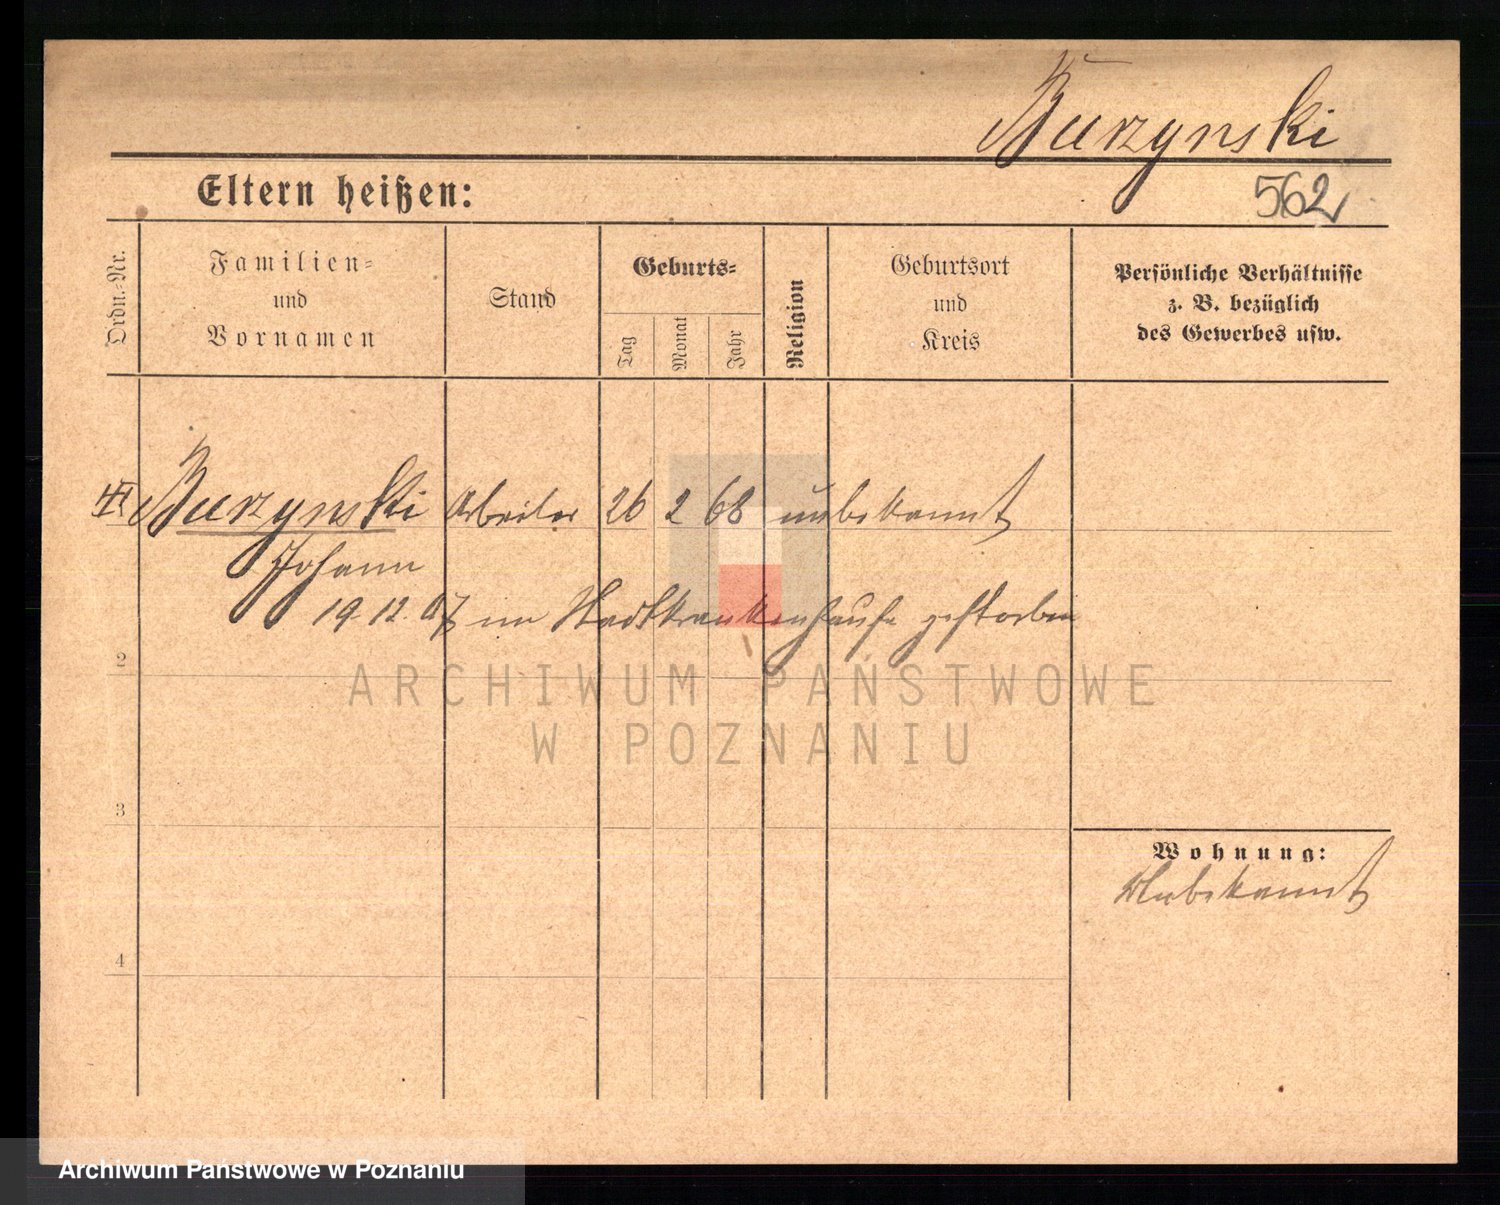 Burzynski
Eltern heißen:
562
Ordn.-Nr.
Familien-
und
Vornamen
Stand
Geburts-
Tag
Monat
Jahr
Religion
Geburtsort
und
Kreis
Persönliche Verhältnisse
z. B. bezüglich
des Gewerbes usw.
Burzynski Arbeiter 26 2 68 unbekannt
Johann
19.12.07 im Stadtkrankenhause gestorben
2
ARCHIWUM PAŃSTWOWE
W POZNANIU
3
Wohnung:
Unbekannt
4
Archiwum Państwowe w Poznaniu